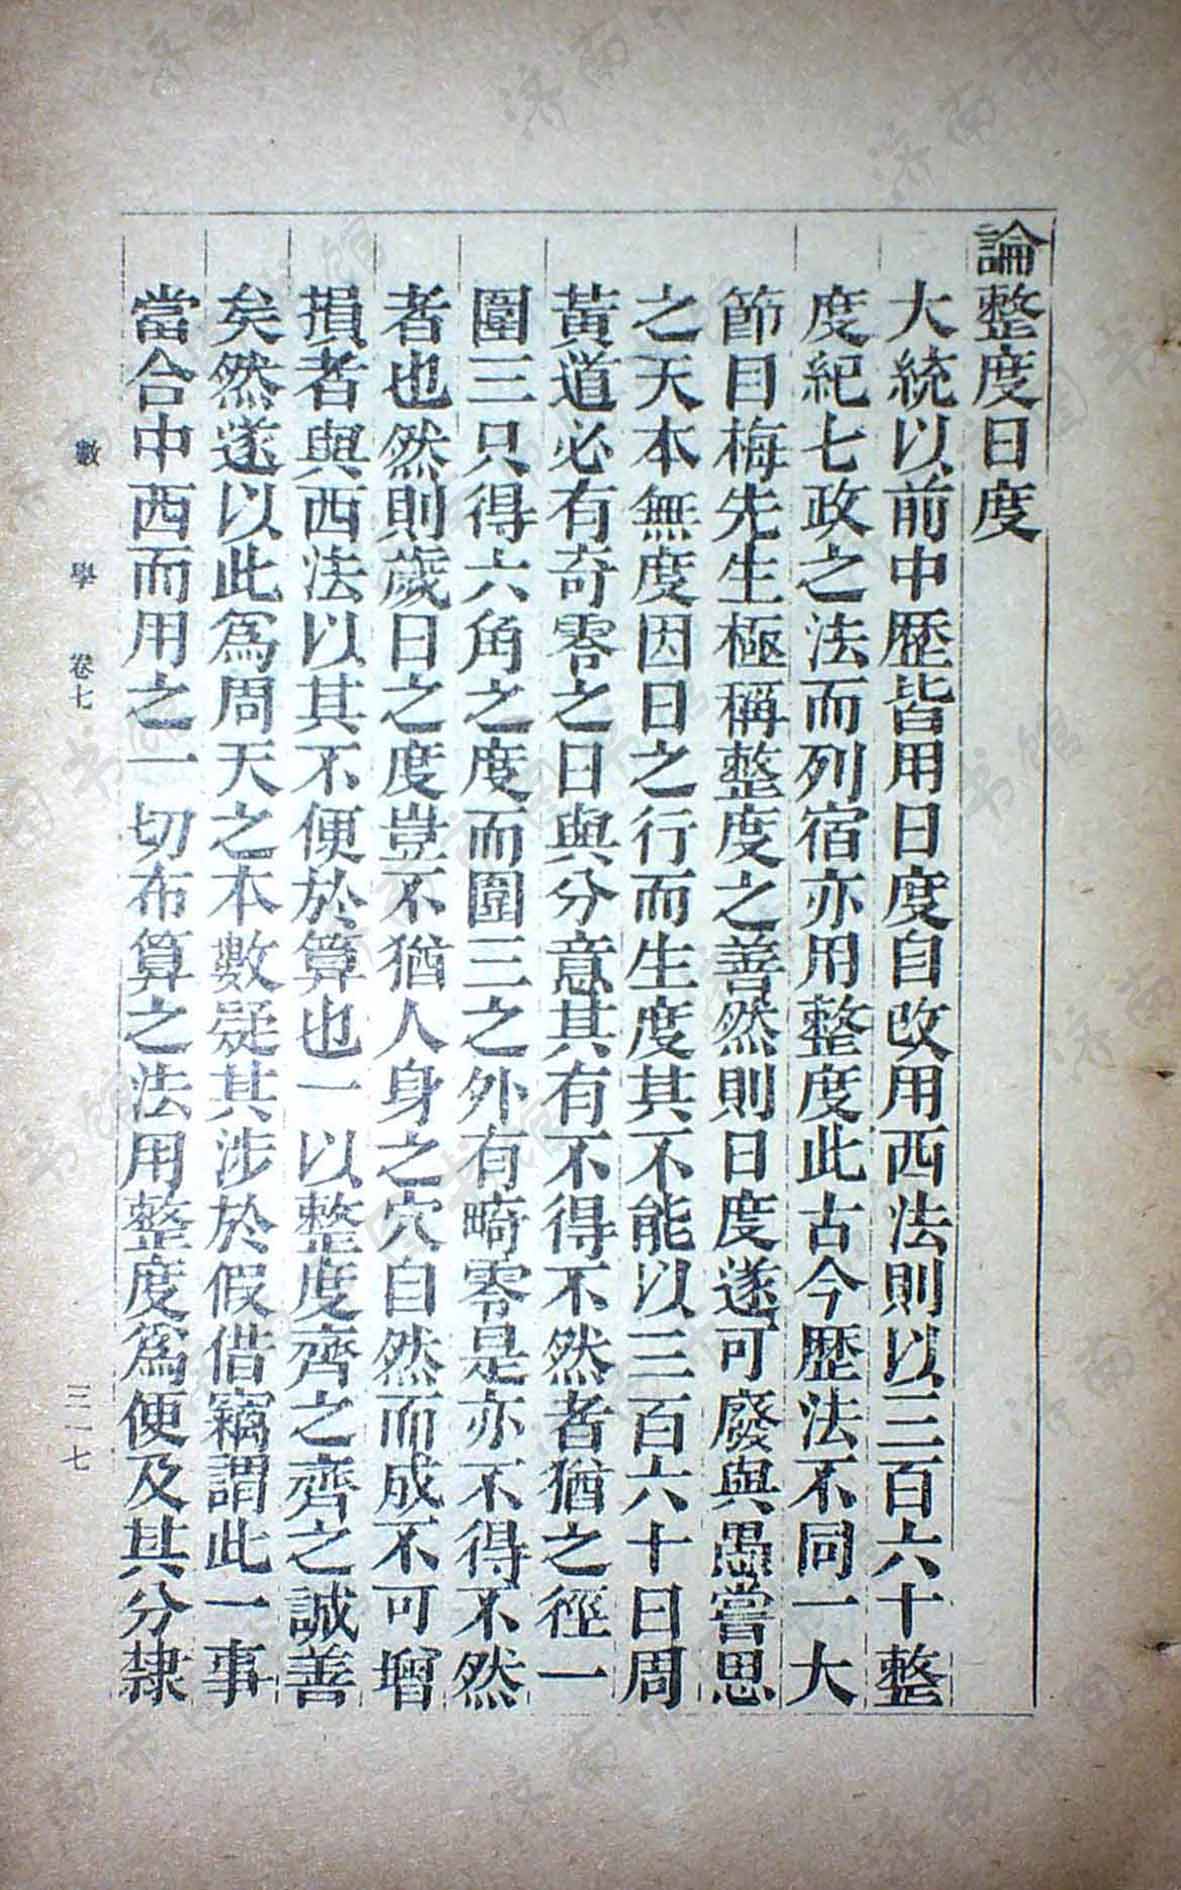 論整度日度
大統以前中歷皆用日度自改用西法則以三百六十整
度紀七政之法而列宿亦用整度此古今歷法不同一大
節目梅先生極稱整度之善然則日度遂可廢與愚嘗思
之天本無度因日之行而生度其不能以三百六十日周
黃道必有奇零之日與分意其有不得不然者猶之徑一
圍三只得六角之度而圍三之外有畸零是亦不得不然
者也然則歲日之度豈不猶人身之穴自然而成不可增
損者與西法以其不便於算也一以整度齊之齊之誠善
矣然遂以此爲周天之本數疑其涉於假借竊謂此一事
當合中西而用之一切布算之法用整度爲便及其分隸
數學 卷七
三一七
济南市图书馆